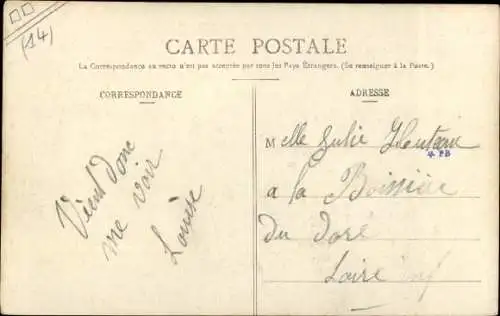 (14)
CARTE POSTALE
La Correspondance au verso n'est pas acceptée par tous les Pays Étrangers. (Se renseigner à la Poste.)
CORRESPONDANCE
ADRESSE
Vient donc
me voir
Louise
Melle Julie
PB
a la Boissière
du Doré
Loire inf